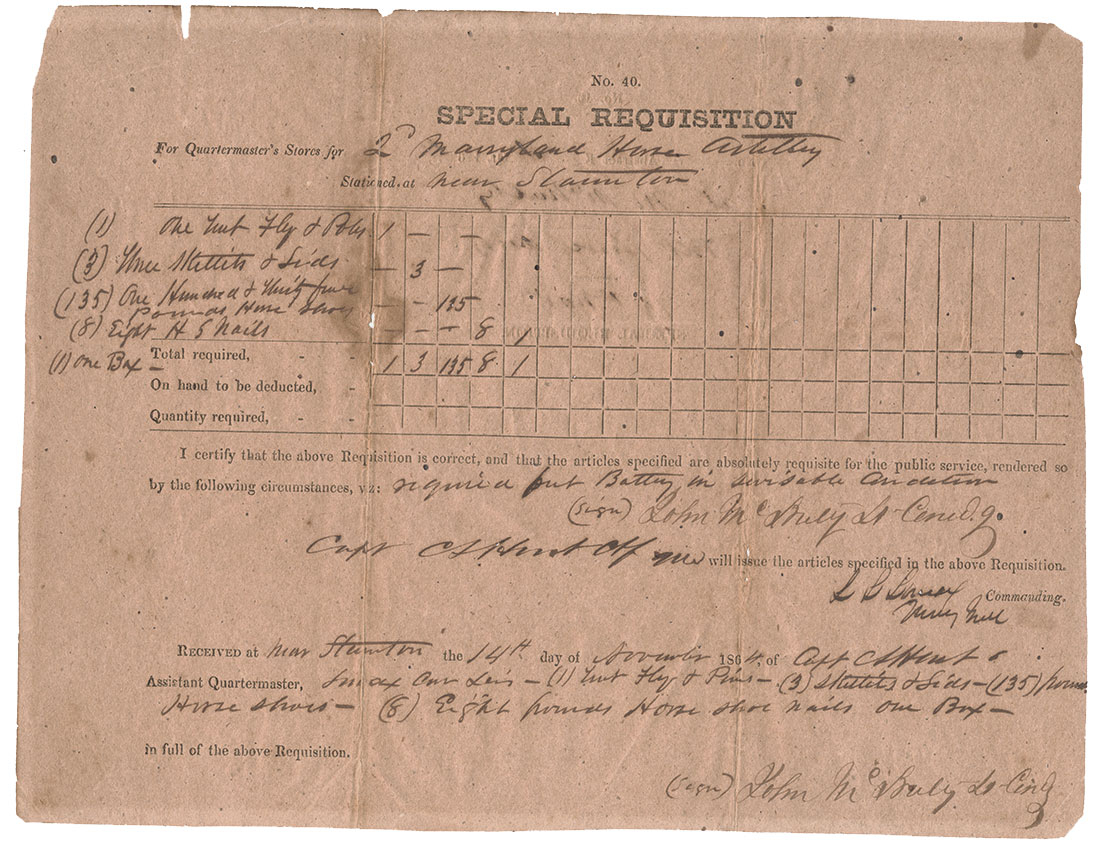 No. 40.
SPECIAL REQUISITION
For Quartermaster's Stores for 2d Marryland Horse Artillery
Stationed at near Staunton
(1) One tent Fly & Poles 1 — —
(3) three Skillits & Lids — 3 —
(135) One Hundred & thirty five
pounds Horse Shoes — — 135
(8) Eight H S Nails — — — 8 1
Total required, - 1 3 135 8 1
(1) One Box —
On hand to be deducted, -
Quantity required, - - -
I certify that the above Requisition is correct, and that the articles specified are absolutely requisite for the public service, rendered so
by the following circumstances, viz: required put Battery in
(sign) John Mc Lt Comd.g.
Capt will issue the articles specified in the above Requisition.
Commanding.
RECEIVED at near Staunton the 14th day of November 1864, of Capt
Assistant Quartermaster, — (1) tent Fly & Pins — (3) Skillits & Lids — (135) pounds
Horse Shoes — (8) Eight pounds Horse Shoe nails One Box —
in full of the above Requisition.
(sign) John Mc Lt Comdg